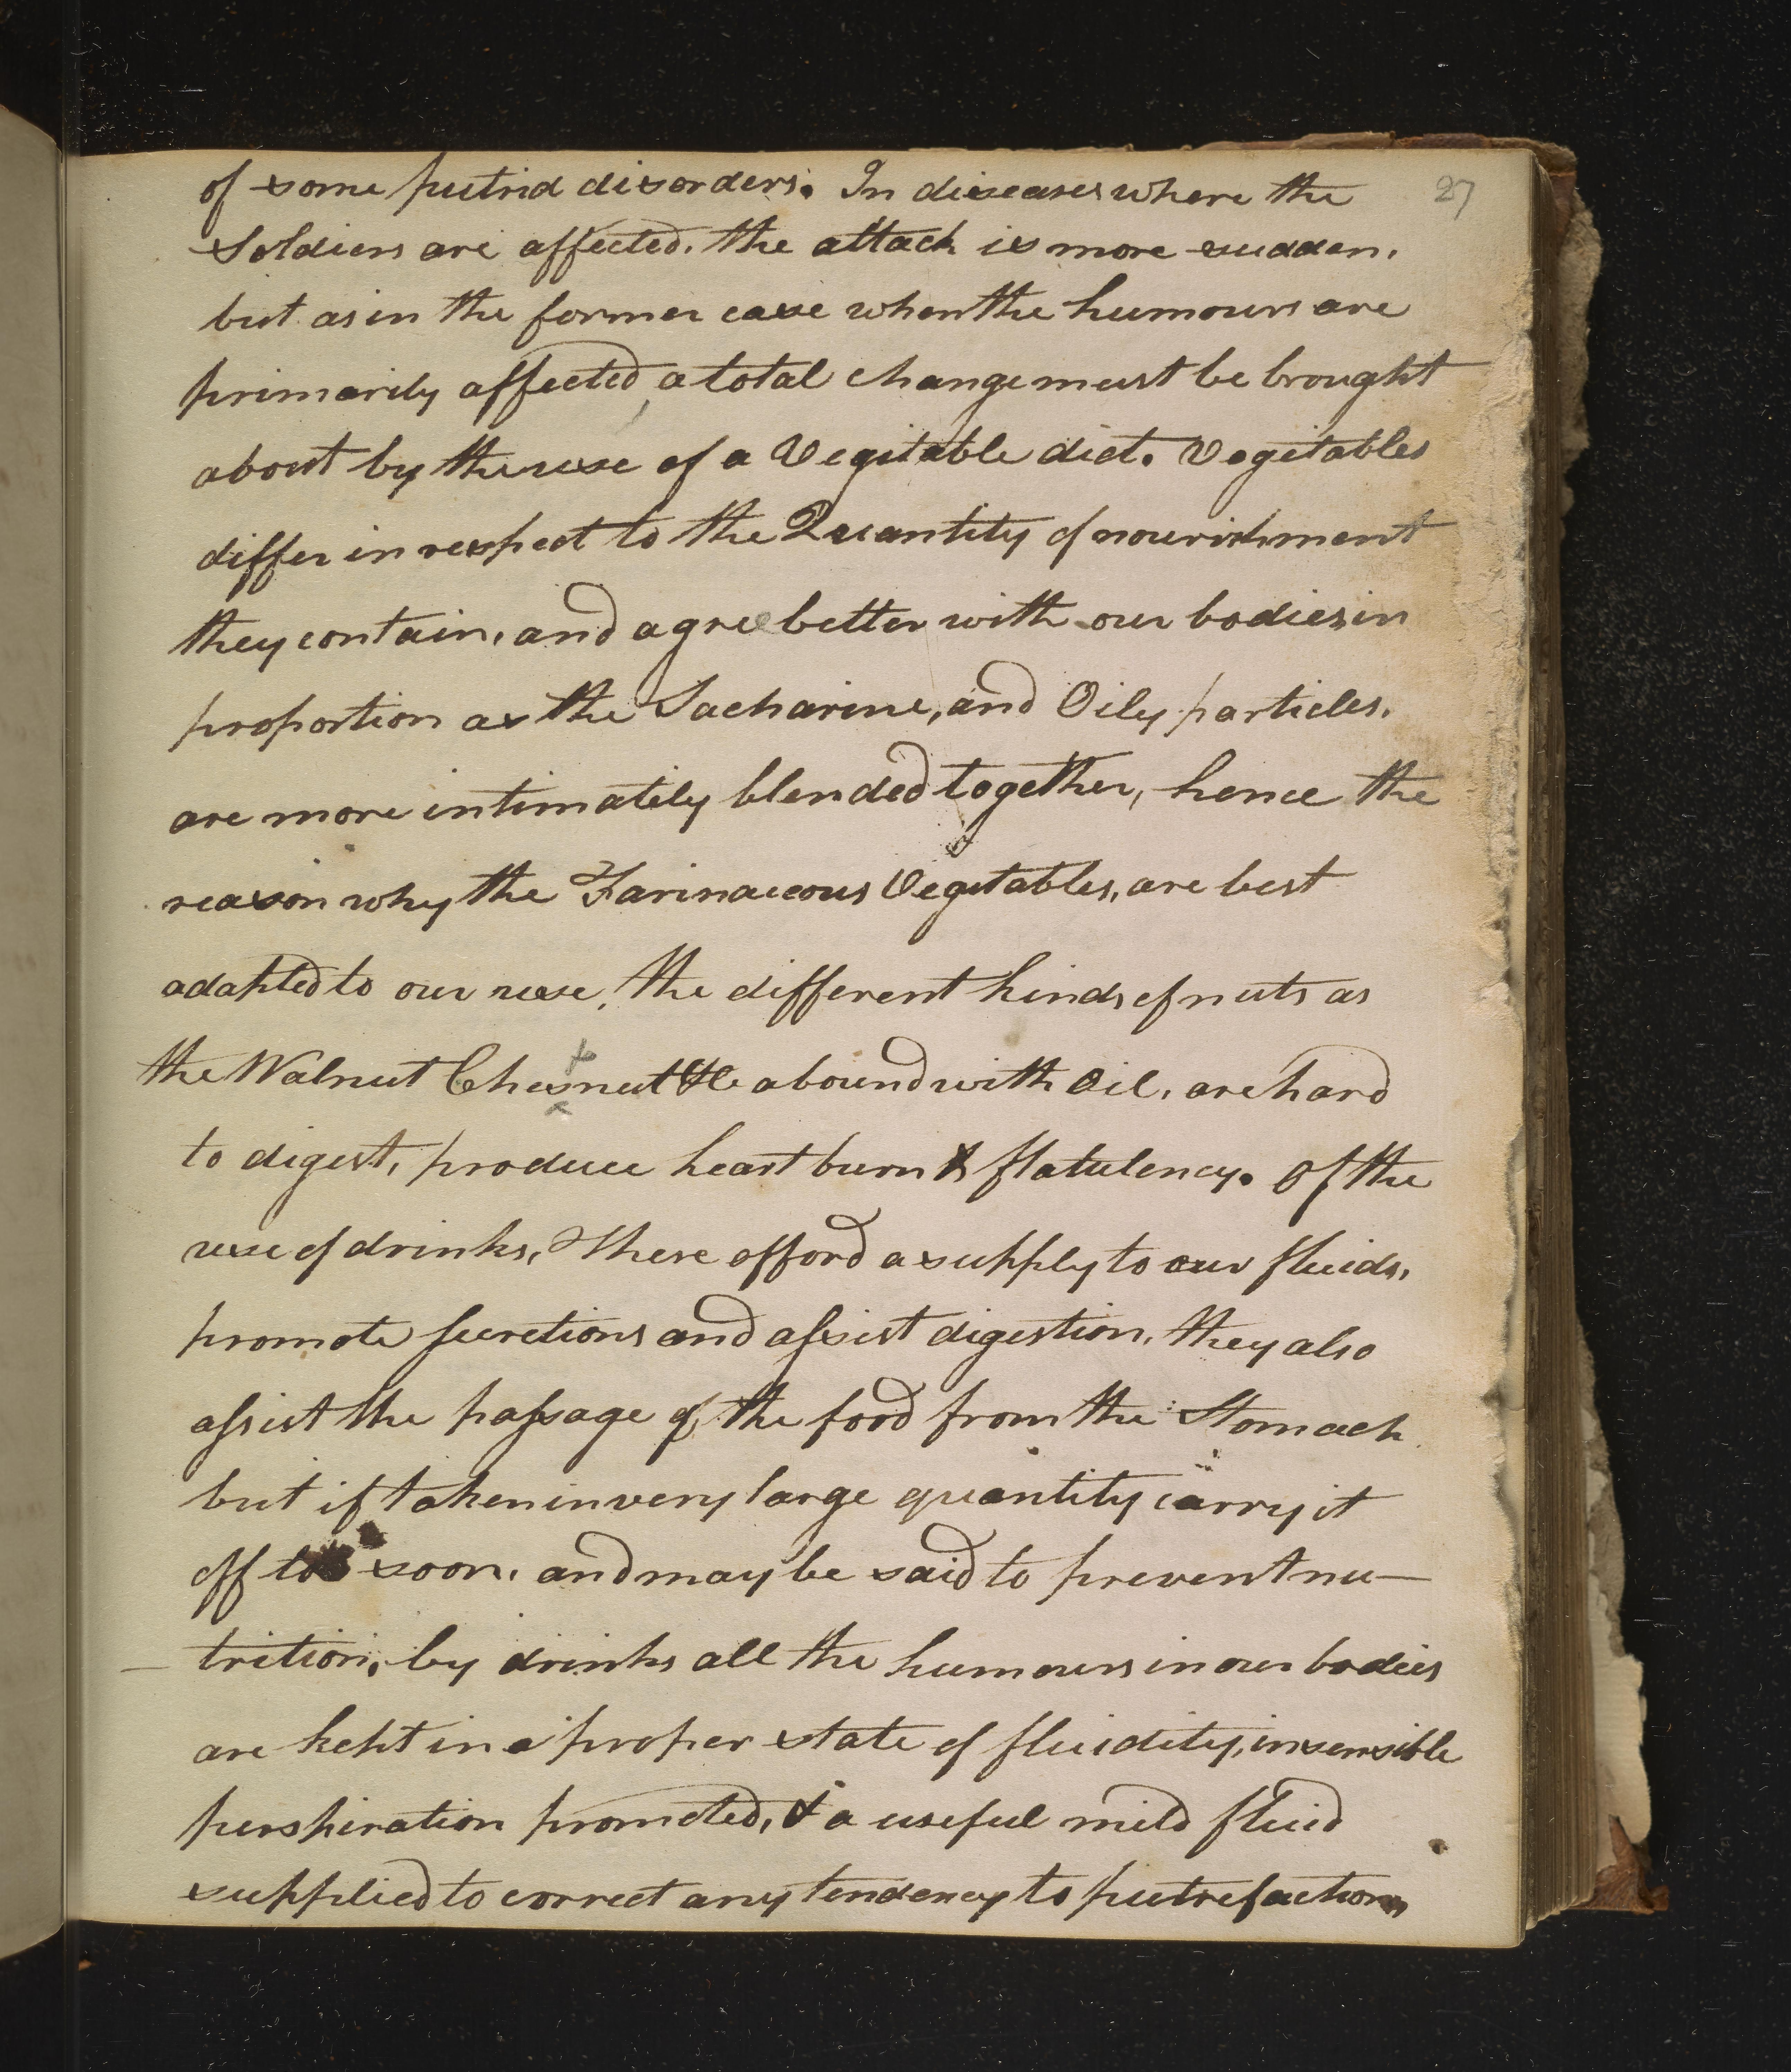 27
of some putrid disorders. In diseases where the
Soldiers are affected. the attack is more sudden.
but as in the former case when the humours are
primarily affected, a total change must be brought
about by the use of a Vegitable diet. Vegitables
differ in respect to the Quantity of nourishment
they contain, and agree better with our bodies in
proportion as the Sacharine, and Oily particles.
are more intimately blended together, hence the
reason why the Farinaceous Vegitables, are best
adapted to our use, the different kinds of nuts as
the Walnut Chesnut &c abound with Oil, are hard
to digest, produce heart burn & flatulency. Of the
use of drinks, These afford a supply to our fluids,
promote secretions and assist digestion, they also
assist the passage of the food from the Stomach
but if taken in very large quantity carry it
off too soon, and may be said to prevent nu—
—trition; by drinks all the humours in our bodies
are kept in a proper state of fluidity, insensible
perspiration promoted, & a useful mild fluid
supplied to correct any tendency to putrefaction